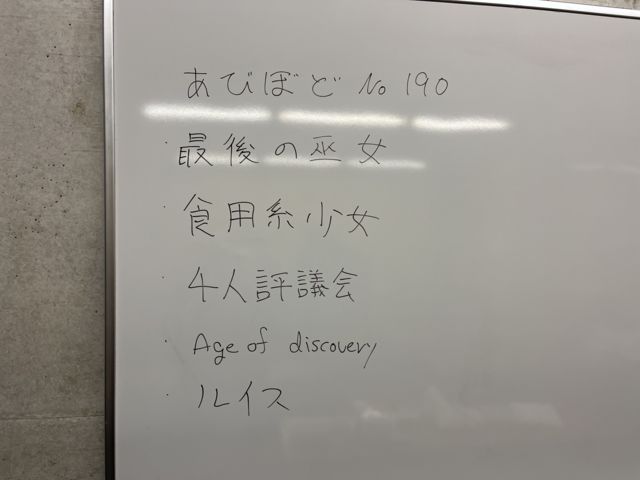 あびぼど No 190
・最後の巫女
・食用系少女
・4人評議会
・Age of discovery
・ルイス